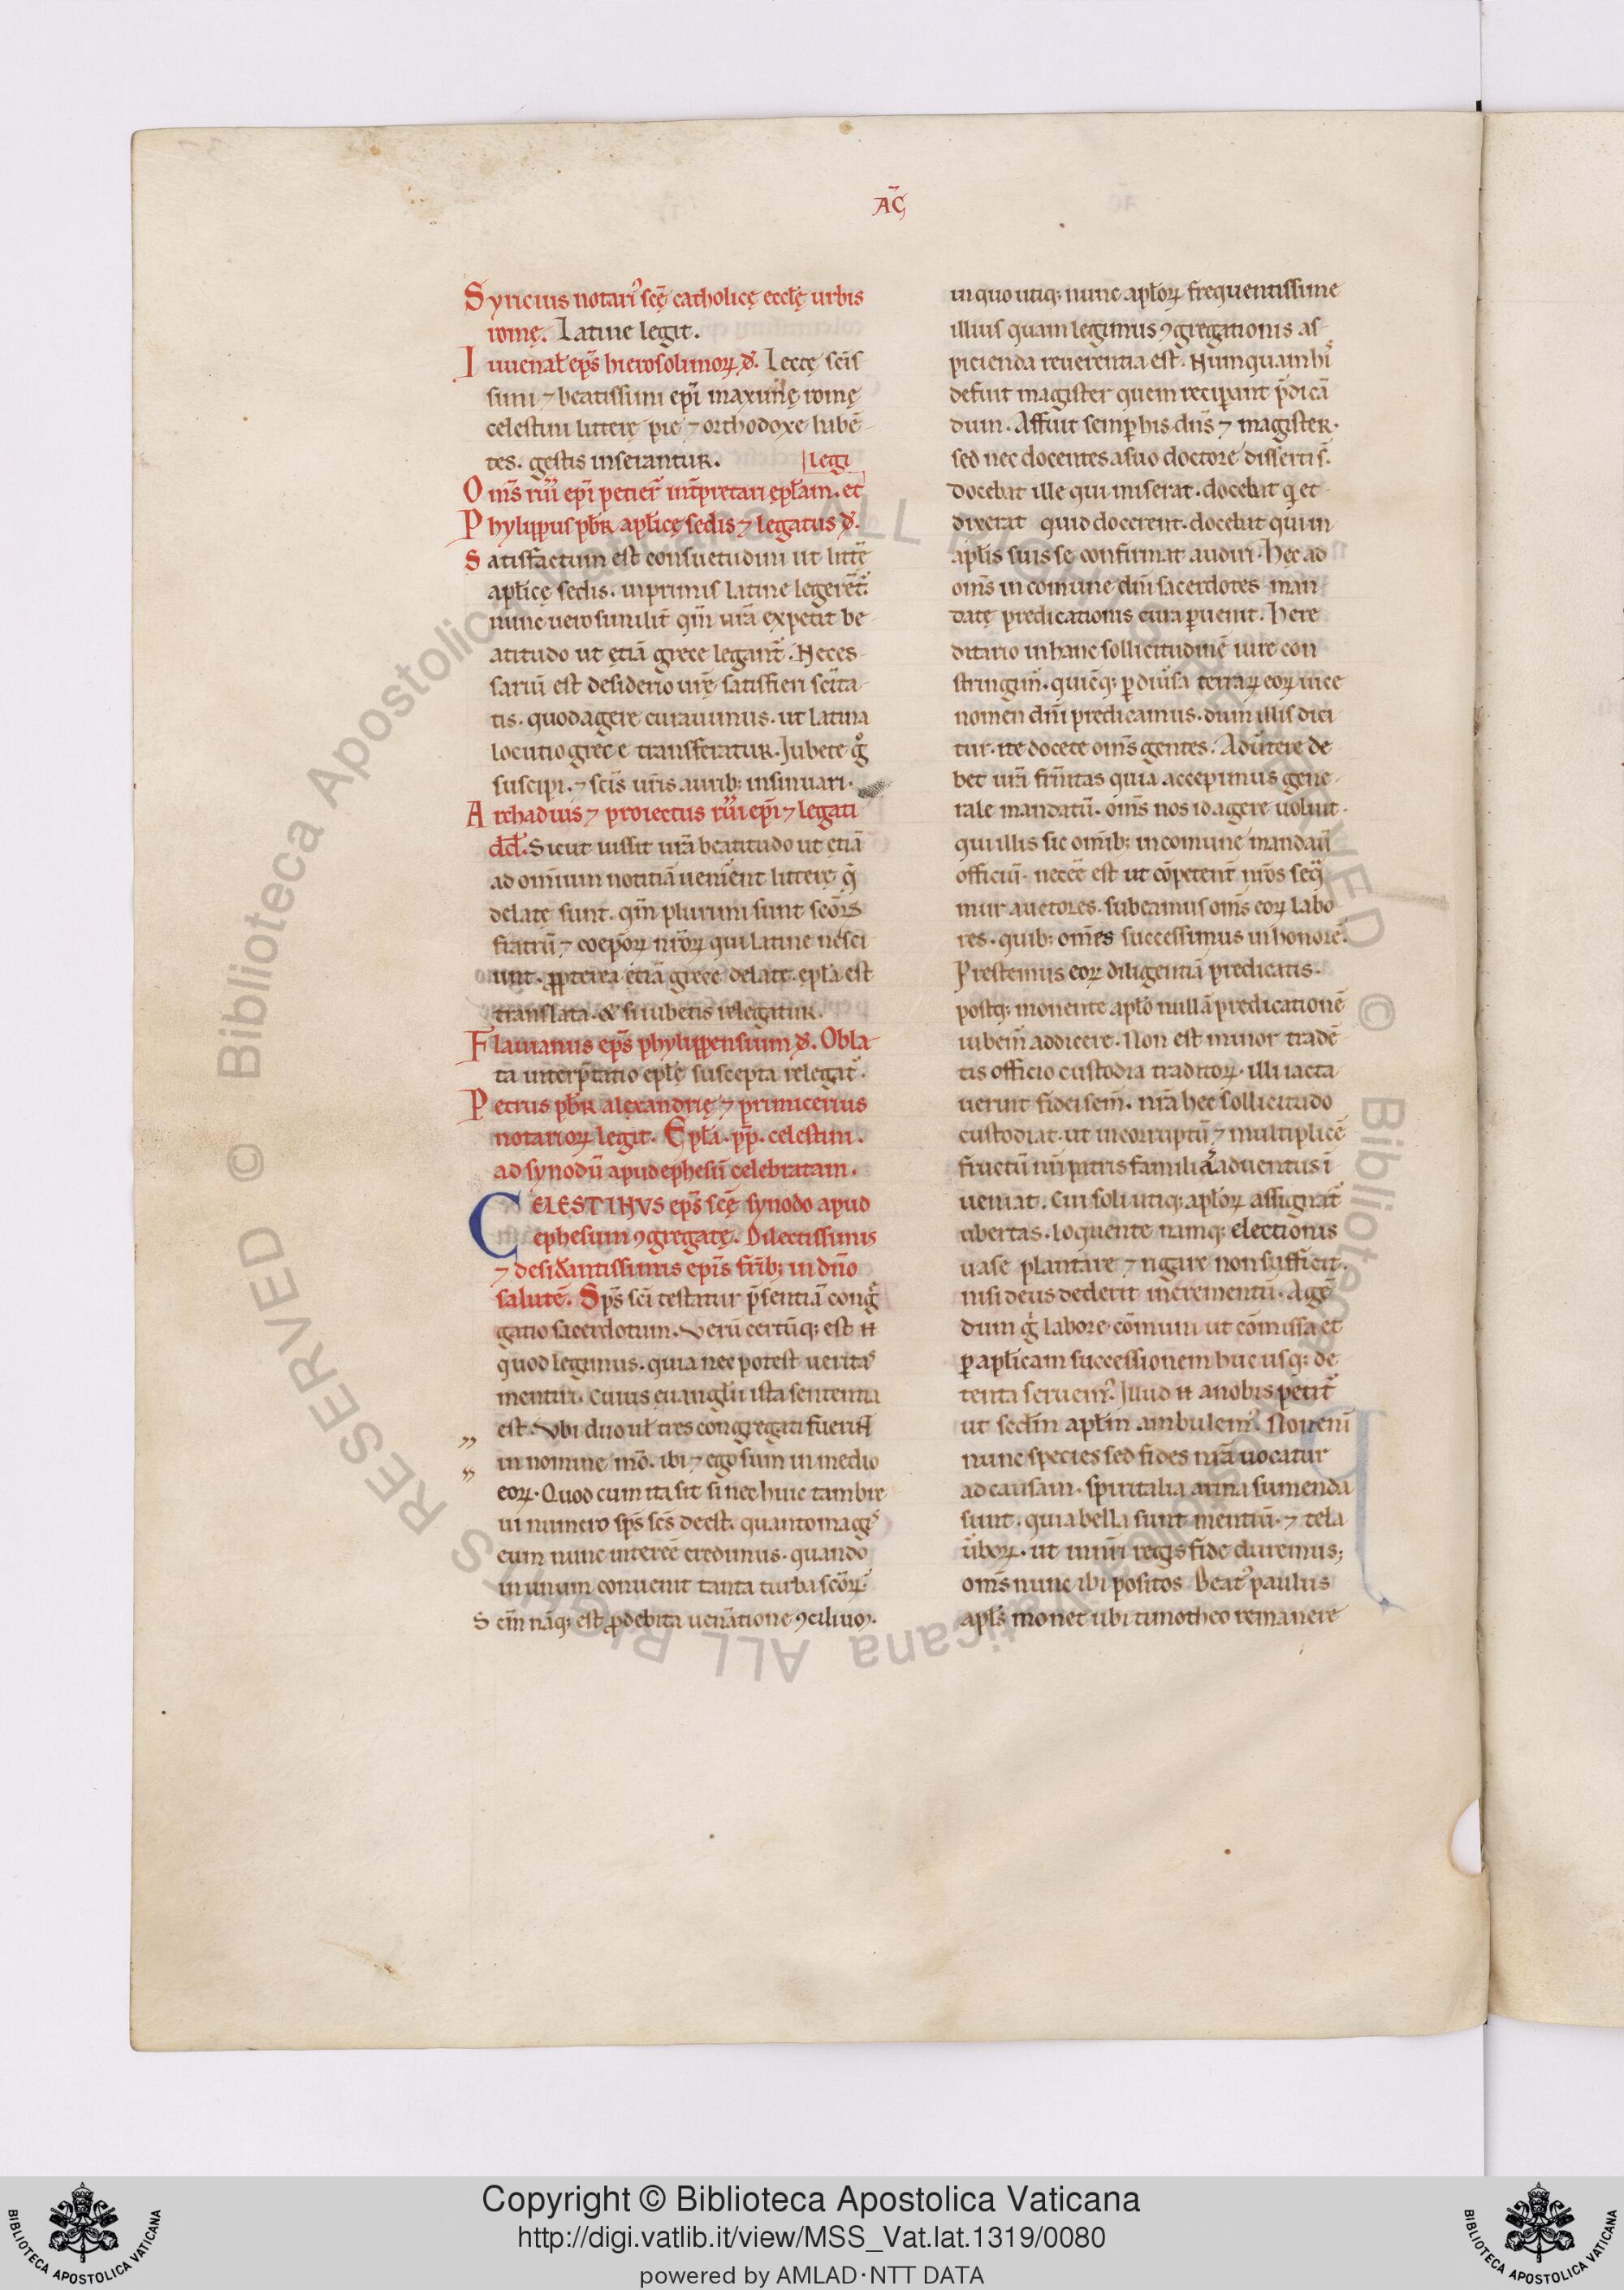 AC̄
Syricius notari᾽ scę̄ catholicę eccl̄ę urbis
romę. Latine legit.
Iuuenal̄ ep̄s hierosolimoꝝ đ. Lectę sc̄is
simi ⁊ beatissimi ep̄i maximę romę
celestini litterę pie ⁊ orthodoxe habē-
tes. gestis inserantur. legi
Om̄s ru᷑i ep̄i petier̄ int̄pretari ep̄lam. et
Phylippus pb̄r apl̄icę sedis ⁊ legatus đ.
Satisfactum est consuetudini ut litt̄ę
apl̄icę sedis. inprimis latine legerēt᷑.
nunc uero similit̄ qm̄ ur̄a expetit be-
atitudo ut etiā grece legant᷑. Neces-
sariū est desiderio ur̄ę satisfieri sc̄ita-
tis. quod agere curauimus. ut latina
locutio grece transferatur. Jubete g̊
suscipi. ⁊ sc̄is ur̄is aurib; insinuari.
Archadius ⁊ proiectus ru᷑i ep̄i ⁊ legati
dd̄. Sicut iussit ur̄a beatitudo ut etiā
ad omnium notitiā uenirent litterę q̄
delatę sunt. qm̄ plurimi sunt sc̄oꝝ
fratrū ⁊ coep̄oꝝ nr̄oꝝ qui latine nesci
unt. ꝓpterea etiā grece delate. ep̄la est
translata. & si iubetis relegatur.
Flauianus ep̄s phylippensium đ. Obla-
ta interp̄tatio ep̄lę suscepta relegat᷑.
Petrus pb̄r alexandrię ⁊ primicerius
notarioꝝ legit. Ep̄la. pp̄. celestini.
ad synodū apud ephesū celebratam.
CELESTINVS ep̄s scę̄ synodo apud
ephesum ꝯgregatę. Dilectissimis
⁊ desiđantissimis ep̄is fr̄ib; in dn̄o
salutē. Sp̄s sc̄i testatur p̄sentiā cong̊
gatio sacerdotum. Verū certūq; est
quod legimus. quia nec potest ueritas
mentiri. cuius euangl̄ii ista sententia
est. Vbi duo ul̄ tres congregati fuerint
in nomine mō. ibi ⁊ ego sum in medio
eoꝝ. Quod cum ita sit si nec huic tam bre
ui numero sp̄s sc̄s deest. quanto magis
cum nunc interēe credimus. quando
in unum conuenit tanta turba sc̄oꝝ.
Sc̄m nāq; est ꝓ debita ueneratione ꝯciliuꝫ.
in quo utiq; nunc apl̄oꝝ frequentissime
illius quam legimus ꝯgregationis as-
picienda reuerentia est. Numquam hi᷑
defuit magister quem reciperant p̄dicā
dum. Affuit semper his dn̄s ⁊ magister.
sed nec docentes a suo doctore disserti s̄.
docebat ille qui miserat. docebat q et
dixerat quid docerent. docebat qui in
apl̄is suis se confirmat audiri. Hęc ad
om̄s in comune dn̄i sacerdotes man
datę predicationis cura ꝑuenit. Here
ditario in hanc sollicitudinē iure con
stringim᷑. quicūq; ꝑ diu᷑sa terraꝝ eoꝝ uice
nomen dn̄i predicamus. dum illis dici
tur. ite docete om̄s gentes. Aduertere de
bet ur̄a fr̄nitas quia accepimus gene-
rale mandatū. om̄s nos id agere uoluit.
qui illis sic om̄ib; in comune mandauit
officiū. necēe est ut cōpetent̄ nr̄os seq̄
mur auctores. subeamus om̄s eoꝝ labo
res. quib; om̄es successimus in honore.
Prestemus eoꝝ diligentiā predicatis.
postq; monente apl̄o nullā predicationē
iubem᷑ addicere. Non est minor tradē-
tis officio custodia traditoꝝ. illi iacta
uerunt fidei sem̄. nr̄a hec sollicitudo
custodiat. ut incorruptū ⁊ multiplicē
fructū nr̄i patris familiᷓ aduentus ī
ueniat. Cui soli utiq; apl̄oꝝ assignat᷑
ubertas. loquente namq; electionis
uase plantare ⁊ rigare non sufficit.
nisi deus dederit incrementū. Agē
dum g̊ labore cōmuni ut cōmissa et
ꝑ apl̄icam successionem huc usq; de-
tenta seruem᷑. Illud a nobis petit᷑
ut sedm̄ apl̄m ambulem᷑.
nunc species sed fides nr̄a uocatur
ad causam. spiritalia arma sumenda
sunt. quia bella sunt mentiū. ⁊ tela
u᷑boꝝ. ut in nr̄i regis fide duremus;
om̄s nunc ibi positos. Beat᷑ paulus
apl̄s monet ubi timotheo remanere
© Biblioteca Apostolica Vaticana ALL RIGHTS RESERVED
© Biblioteca Apostolica Vaticana ALL RIGHTS RESERVED
Copyright © Biblioteca Apostolica Vaticana
http://digi.vatlib.it/view/MSS_Vat.lat.1319/0080
powered by AMLAD·NTT DATA
BIBLIOTECA APOSTOLICA VATICANA
BIBLIOTECA APOSTOLICA VATICANA